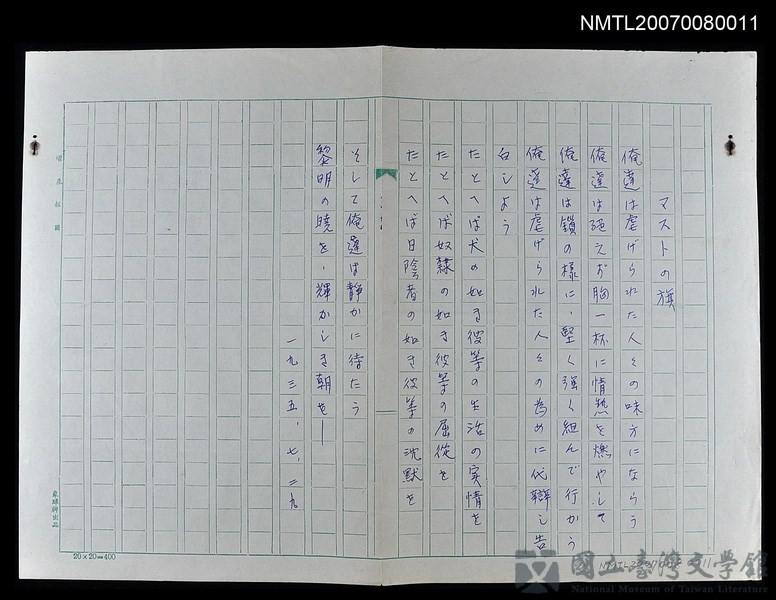 NMTL20070080011
マストの旗
俺達は虐げられた人々の味方にならう
俺達は絶えず胸一杯に情熱を燃やして
俺達は鎖の様に、堅く強く組んで行かう
俺達は虐げられた人々の為めに代辯し告
白しよう
たとへば犬の如き彼等の生活の実情を
たとへば奴隷の如き彼等の屈従を
たとへば日陰者の如き彼等の沈黙を
そして俺達は静かに待たう
黎明の暁を、輝かしき朝を──
一九三五、七、二九
20×20=400
國立臺灣文學館
National Museum of Taiwan Literature